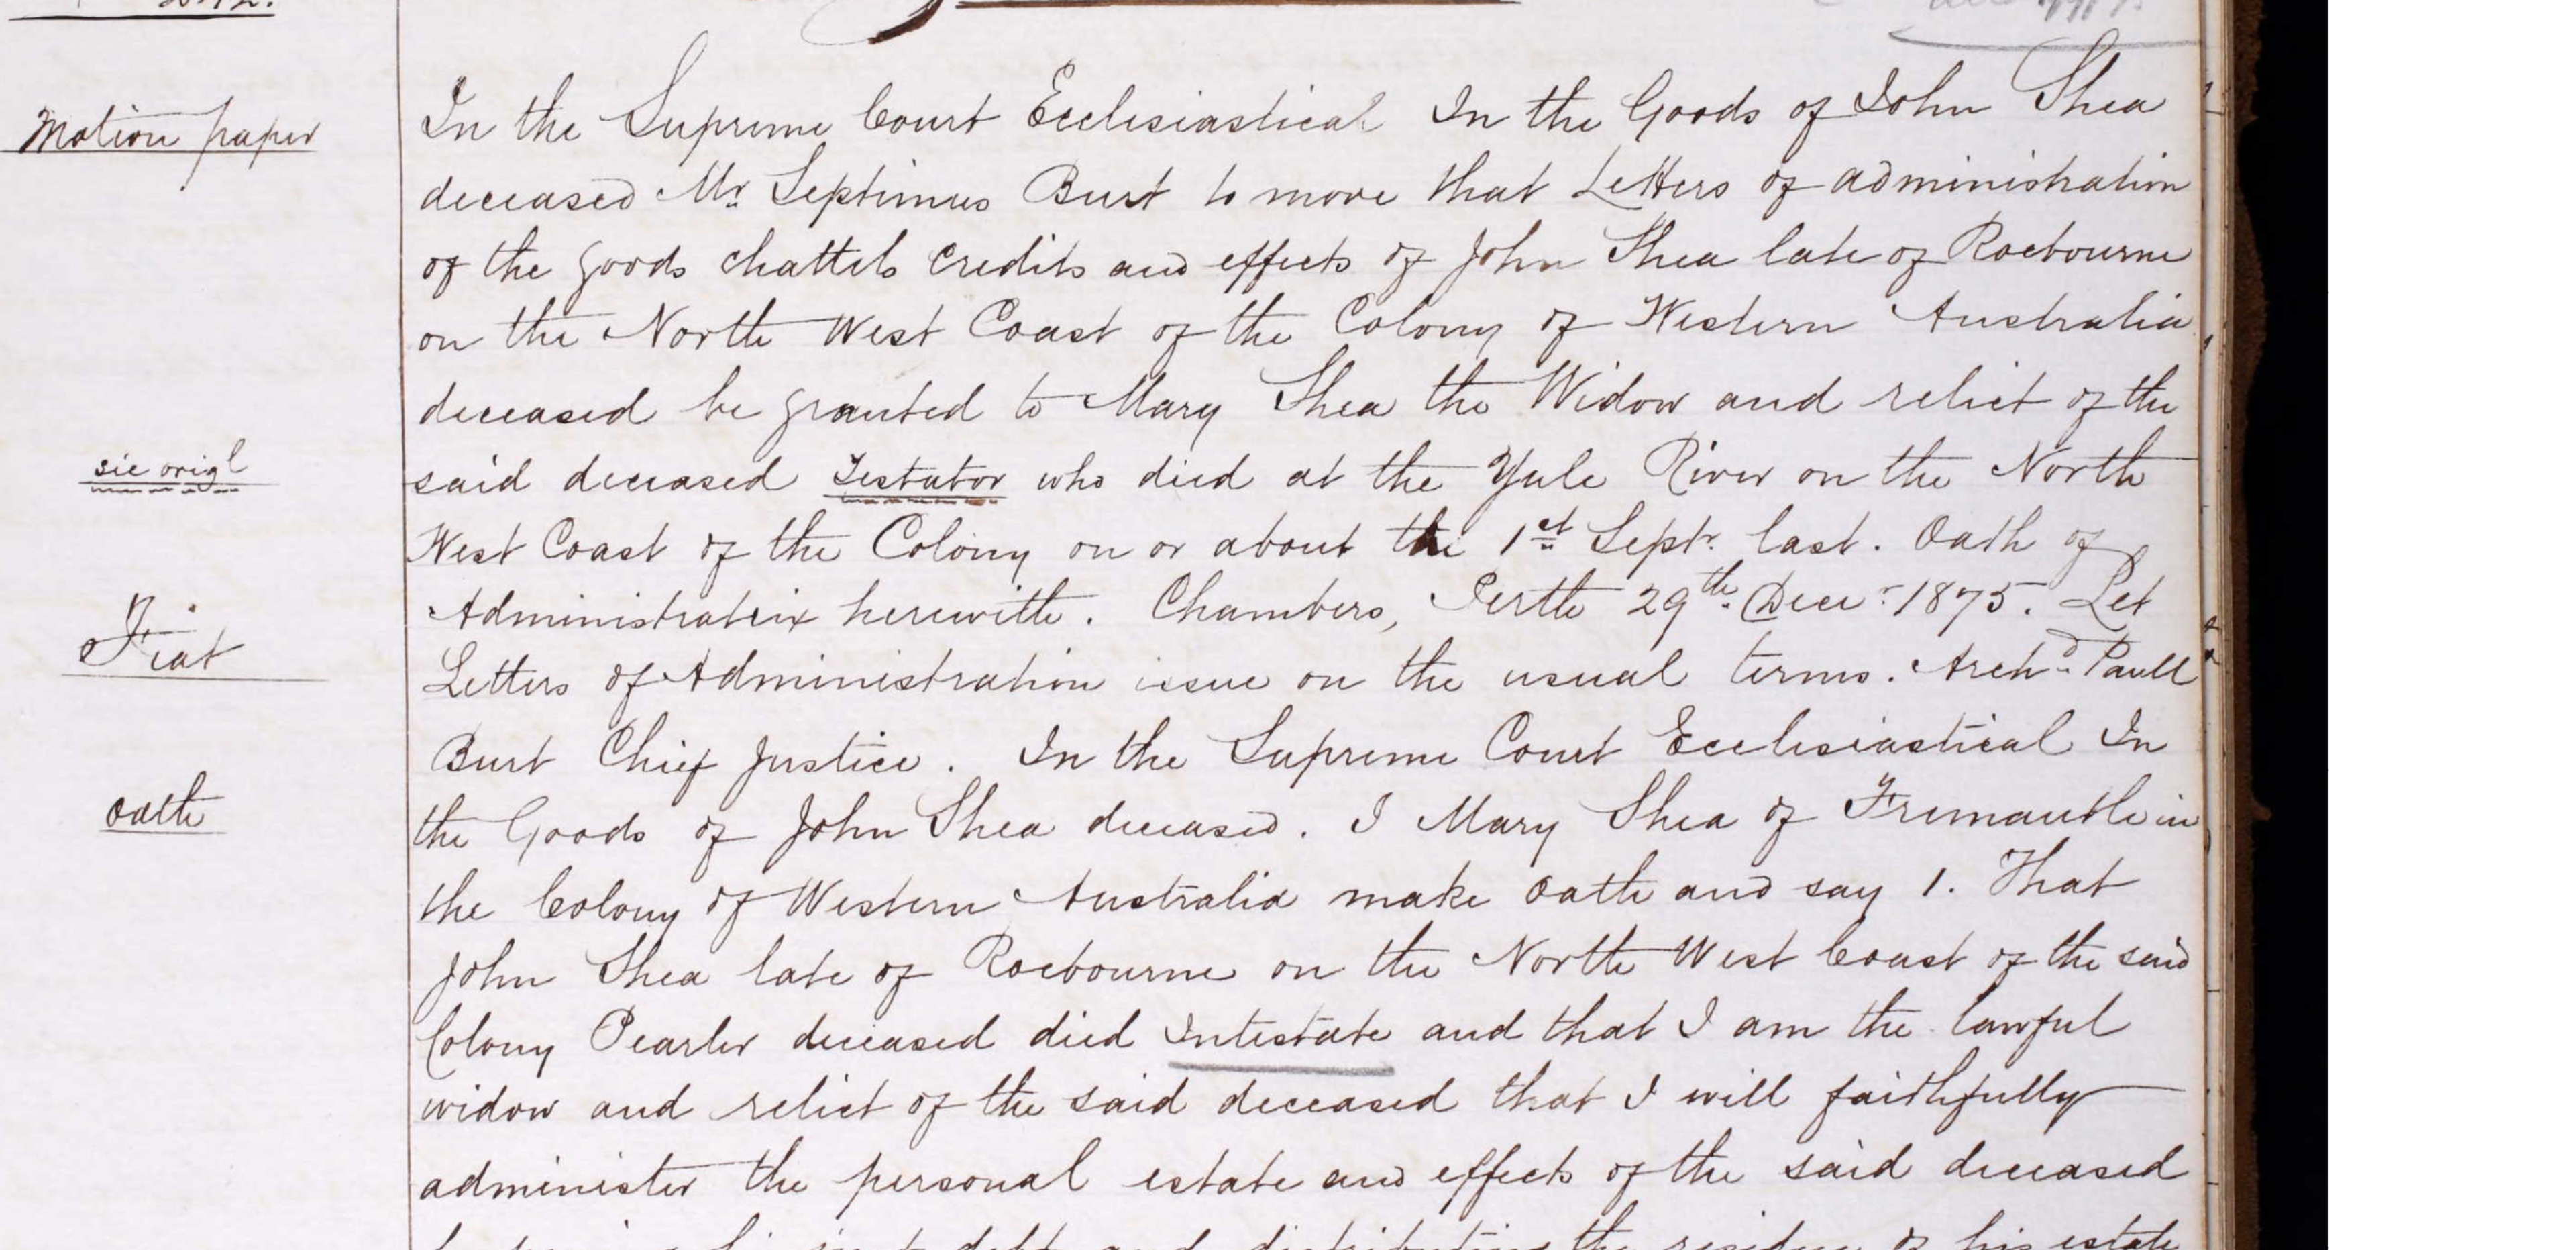 Motion paper
In the Supreme Court Ecclesiastical In the Goods of John Shea
deceased Mr. Septimus Burt to move that Letters of administration
of the goods chattels credits and effects of John Shea late of Roebourne
on the North West Coast of the Colony of Western Australia
deceased be granted to Mary Shea the Widow and relict of the
sic origl
said deceased Testator who died at the Yule River on the North
West Coast of the Colony on or about the 1st Septr. last. Oath of
Administratrix herewith. Chambers, Perth 29th. Decr. 1875. Let
Fiat
Letters of Administration issue on the usual terms. Archd. Paull
Burt Chief Justice. In the Supreme Court Ecclesiastical In
oath
the Goods of John Shea deceased. I Mary Shea of Fremantle in
the Colony of Western Australia make oath and say 1. That
John Shea late of Roebourne on the North West Coast of the said
Colony Pearler deceased died Intestate and that I am the lawful
widow and relict of the said deceased that I will faithfully
administer the personal estate and effects of the said deceased
debts and distributing the residue of his estate